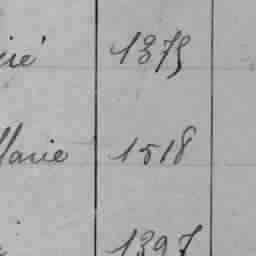 1375
Marie 1518
1397